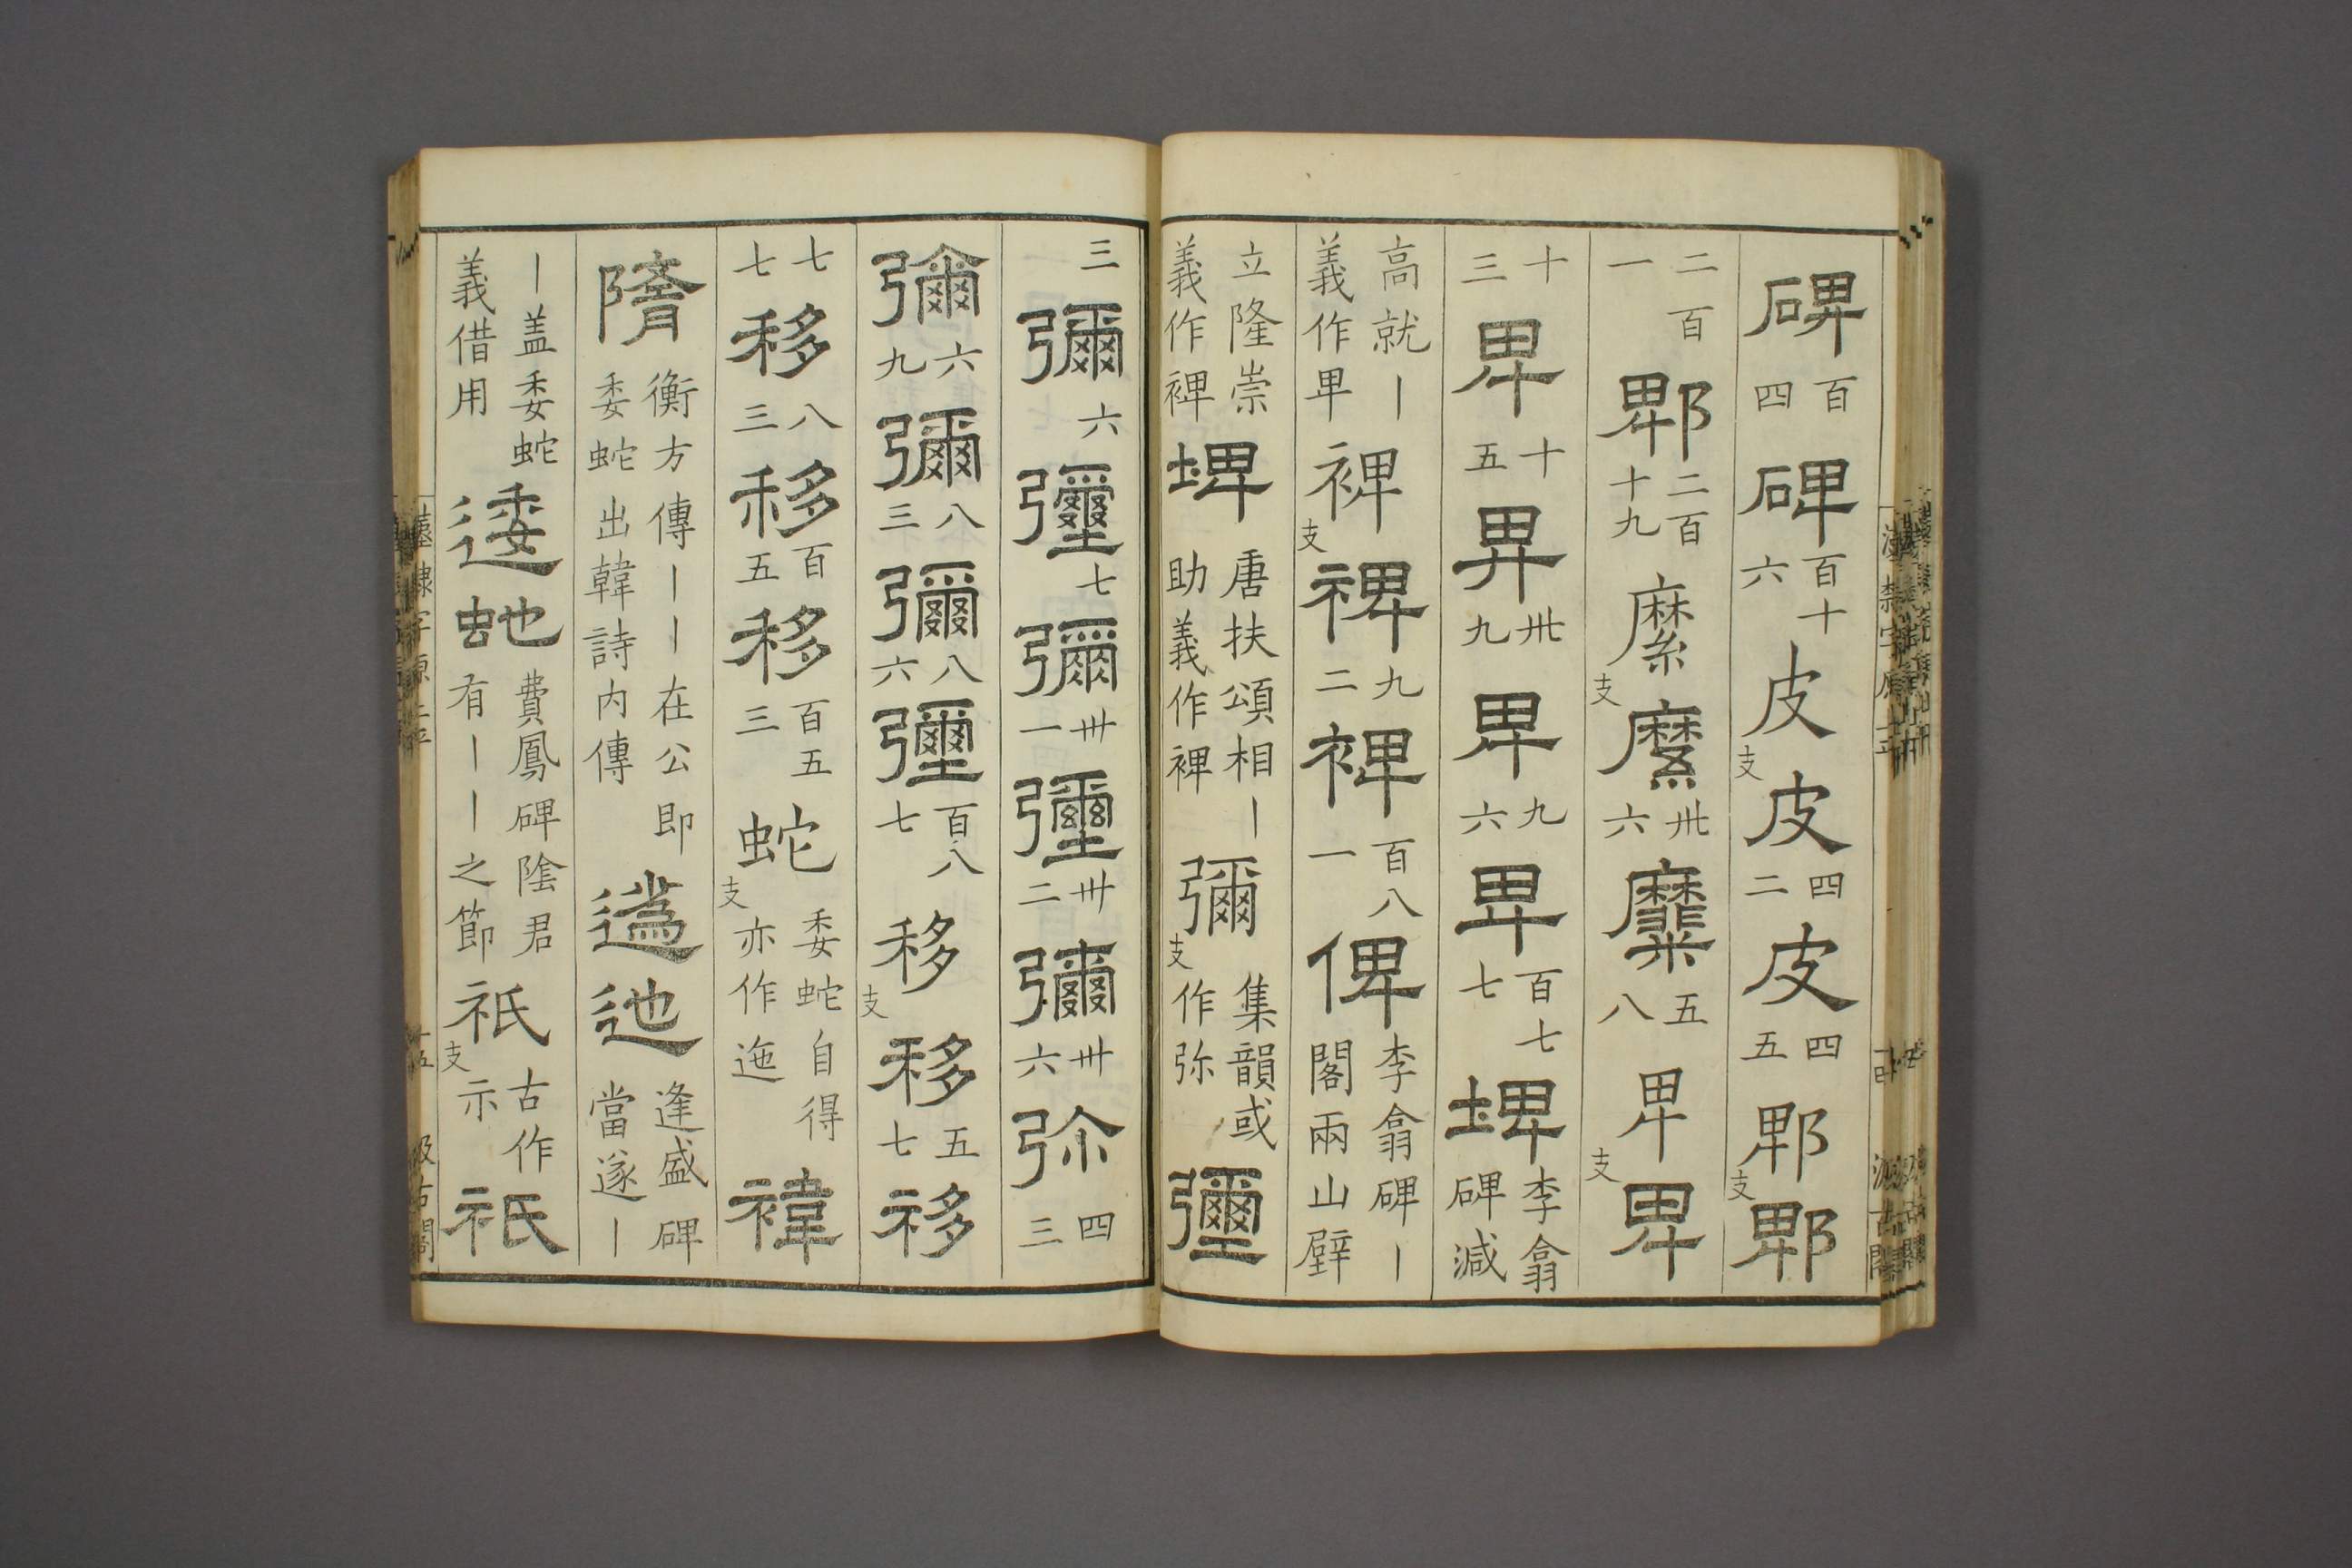 碑百四碑百十六皮支皮四二皮四五郫支郫
二百一郫二百十九縻支縻卅六糜五八卑支卑
十三卑十五畀卅九卑九六卑百七七埤李翕碑減
高就丨義作卑裨支裨九二裨百八一俾李翕碑丨閣兩山壁
立隆崇義作裨埤唐扶頌相丨助義作裨彌支集韻或作弥彌
三彌六彌七彌卅一彌卅二彌卅六弥四三
彌六九彌八三彌八六彌百八七移支移五七移
七七移八三移百五移百五三蛇支委蛇自得亦作迤禕
隋衡方傳丨丨在公即委蛇出韓詩內傳逶迆逢盛碑當遂丨
丨盖委蛇義借用逶虵費鳳碑陰君有丨丨之節祇支古作示祇